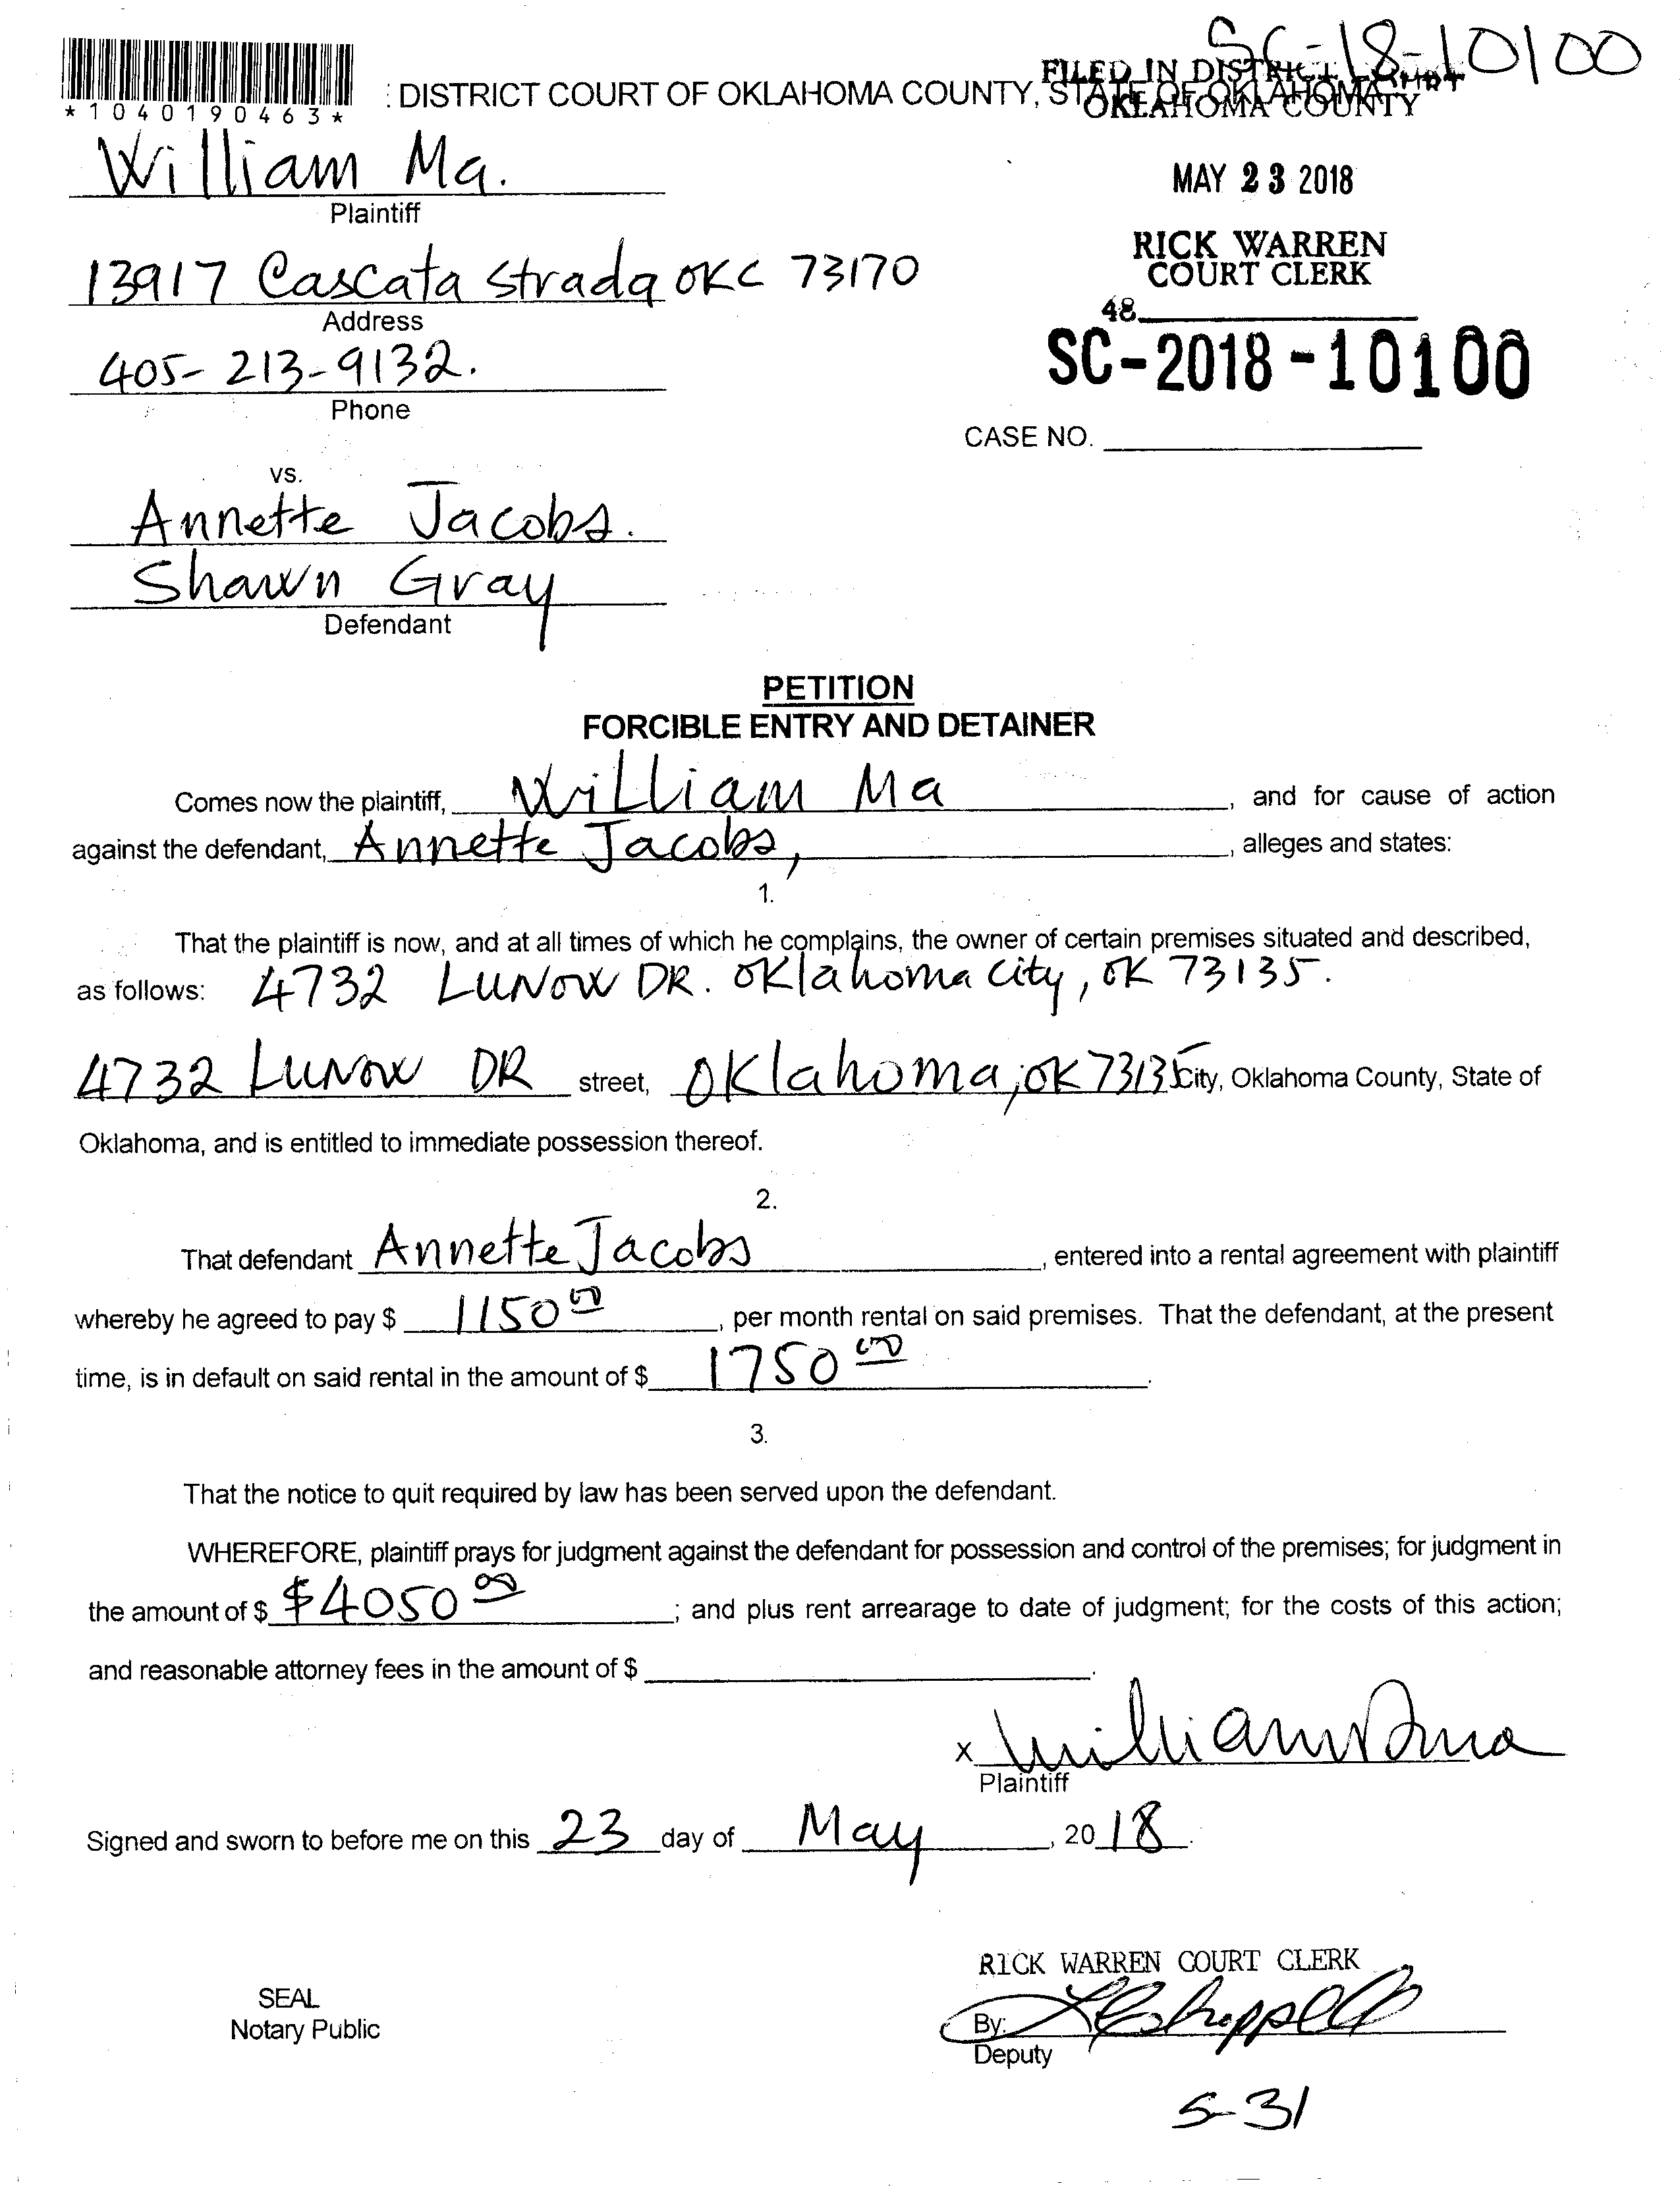 SC-18-10100
*1040190463*
: DISTRICT COURT OF OKLAHOMA COUNTY, STATE OF OKLAHOMA
FILED IN DISTRICT COURT
OKLAHOMA COUNTY
William Ma.
Plaintiff
MAY 23 2018
13917 Cascata Strada OKC 73170
Address
RICK WARREN
COURT CLERK
48
405-213-9132.
Phone
SC-2018-10100
CASE NO.
vs.
Annette Jacobs.
Shawn Gray
Defendant
PETITION
FORCIBLE ENTRY AND DETAINER
Comes now the plaintiff, William Ma, and for cause of action
against the defendant, Annette Jacobs, , alleges and states:
1.
That the plaintiff is now, and at all times of which he complains, the owner of certain premises situated and described,
as follows: 4732 LUNOW DR. OKlahoma City, OK 73135.
4732 LUNOW DR street, OKlahoma, OK 73135 City, Oklahoma County, State of
Oklahoma, and is entitled to immediate possession thereof.
2.
That defendant Annette Jacobs, entered into a rental agreement with plaintiff
whereby he agreed to pay $ 1150 00, per month rental on said premises. That the defendant, at the present
time, is in default on said rental in the amount of $ 1750 00.
3.
That the notice to quit required by law has been served upon the defendant.
WHEREFORE, plaintiff prays for judgment against the defendant for possession and control of the premises; for judgment in
the amount of $ $4050 00; and plus rent arrearage to date of judgment; for the costs of this action;
and reasonable attorney fees in the amount of $ .
x William Ma
Plaintiff
Signed and sworn to before me on this 23 day of May, 2018.
RICK WARREN COURT CLERK
SEAL
Notary Public
By:
Deputy
5-31